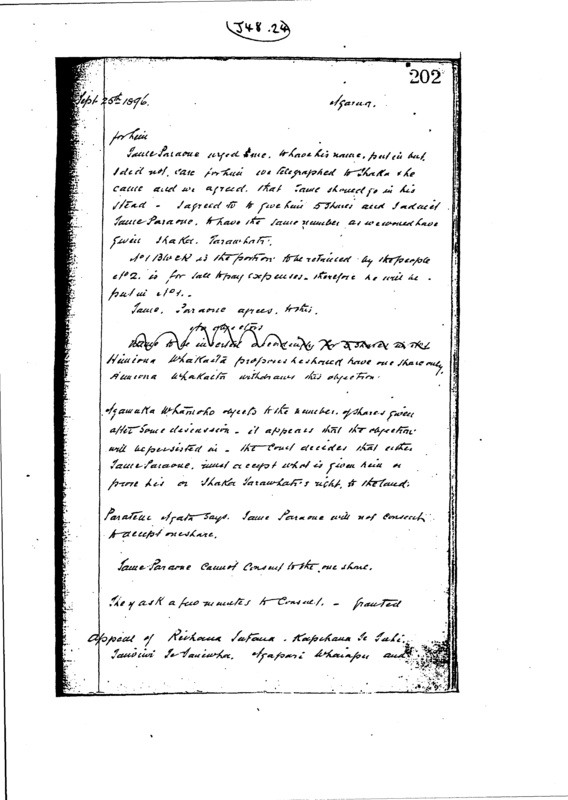 J48.24
202
Sept 25th 1896. Ngarua.
for him
Tame Paraone urged me to have his name put in but
I did not care for him we telegraphed to Shaka & he
came and we agreed that Tame should go in his
stead - I agreed to give him 5 shares and I advised
Tame Paraone to have the same number as we would have
given Shaka Tarawhati.
No 1 Block is the portion to be retained by the people
No 2. is for sale to pay expenses - therefore he will be
put in No 1 -
Tame Paraone agrees to this.
objectors
to be inserted
Himiona Whakaita proposes he should have one share only,
Himiona Whakaita withdraws this objection.
Ngawaka objects to the number of shares given
after some discussion - it appears that the objection
will be persisted in - the Court decides that either
Tame Paraone must accept what is given him or
prove his or Shaka Tarawhati's right to the land.
Paratene Ngata says. Tame Paraone will not consent
to accept one share.
Tame Paraone cannot consent to the one share.
They ask a few minutes to consult. - Granted
Appeal of Rewhana - Kapihana Te Tuhi.
Te Taniwha. Ngapari Whaiapu and